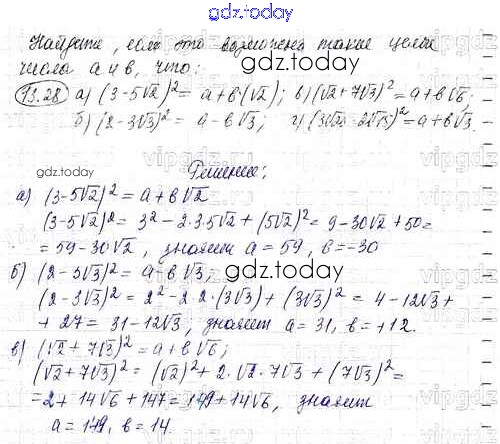 gdz.today
Найдите, если это возможно такие целые
числа a и b, что:
13.28 а) (3-5√2)² = a+b(√2); в) (√2+7√3)² = a+b√6;
б) (2-3√3)² = a-b√3; г) = a+b√3.
gdz.today
Решение;
а) (3-5√2)² = a+b√2
(3-5√2)² = 3² - 2·3·5√2 + (5√2)² = 9-30√2+50=
= 59-30√2, значит a = 59, b = -30
gdz.today
б) (2-3√3)² = a-b√3;
(2-3√3)² = 2² - 2·2·(3√3) + (3√3)² = 4-12√3+
+ 27 = 31-12√3, значит a = 31, b = +12.
в) (√2+7√3)² = a+b√6;
(√2+7√3)² = (√2)² + 2·√2·7√3 + (7√3)² =
= 2+14√6+147 = 149+14√6, значит
a = 149, b = 14.
gdz.today